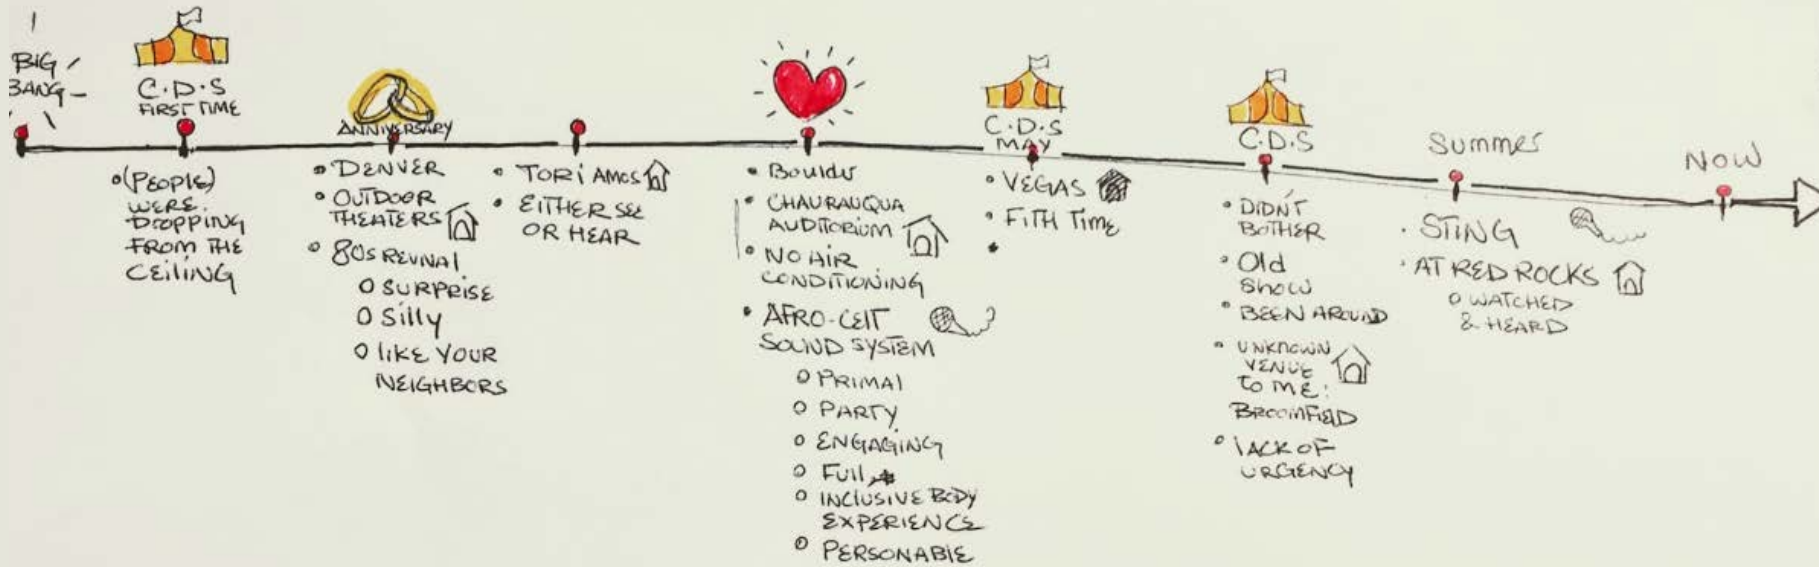 BIG
BANG
C.D.S
FIRST TIME
• (PEOPLE)
WERE
DROPPING
FROM THE
CEILING
ANNIVERSARY
• DENVER
• OUTDOOR
THEATERS
• 80s REVIVAL
O SURPRISE
O Silly
O LIKE YOUR
NEIGHBORS
• TORI AMOS
• EITHER SEE
OR HEAR
• Boulder
• CHAURAUQUA
AUDITORIUM
• NO AIR
CONDITIONING
• AFRO-CELT
SOUND SYSTEM
O PRIMAL
O PARTY
O ENGAGING
O FULL
O INCLUSIVE BODY
EXPERIENCE
O PERSONABLE
C.D.S
MAY
• VEGAS
• FITH TIME
•
C.D.S
• DIDN'T
BOTHER
• Old
SHOW
• BEEN AROUND
• UNKNOWN
VENUE
TO ME:
BROOMFIELD
• LACK OF
URGENCY
Summer
• STING
• AT RED ROCKS
O WATCHED
& HEARD
NOW